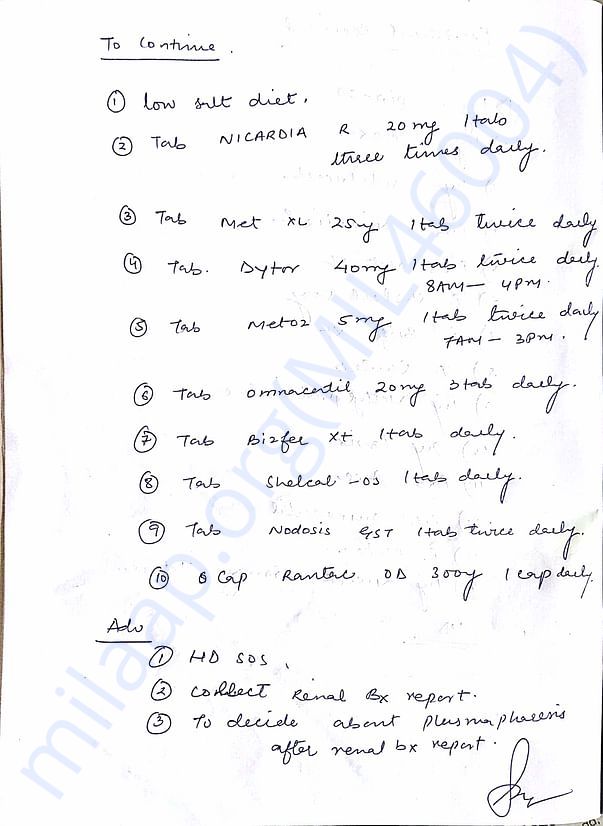 To Continue.
① low salt diet.
② Tab NICARDIA R 20mg 1tab
three times daily.
③ Tab Met XL 25mg 1tab twice daily
④ Tab. Dytor 40mg 1tab twice daily
8AM - 4PM.
⑤ Tab Metoz 5mg 1tab twice daily
7AM - 3PM.
⑥ Tab omnacortil 20mg 3tab daily.
⑦ Tab Bizfer XT 1tab daily.
⑧ Tab Shelcal -OS 1tab daily.
⑨ Tab Nodosis 1tab twice daily.
⑩ Cap Rantac OD 300mg 1 cap daily.
Adv
① HD SOS.
② Collect Renal Bx report.
③ To decide about plasmapharesis
after renal bx report.
milaap.org(MIL46004)